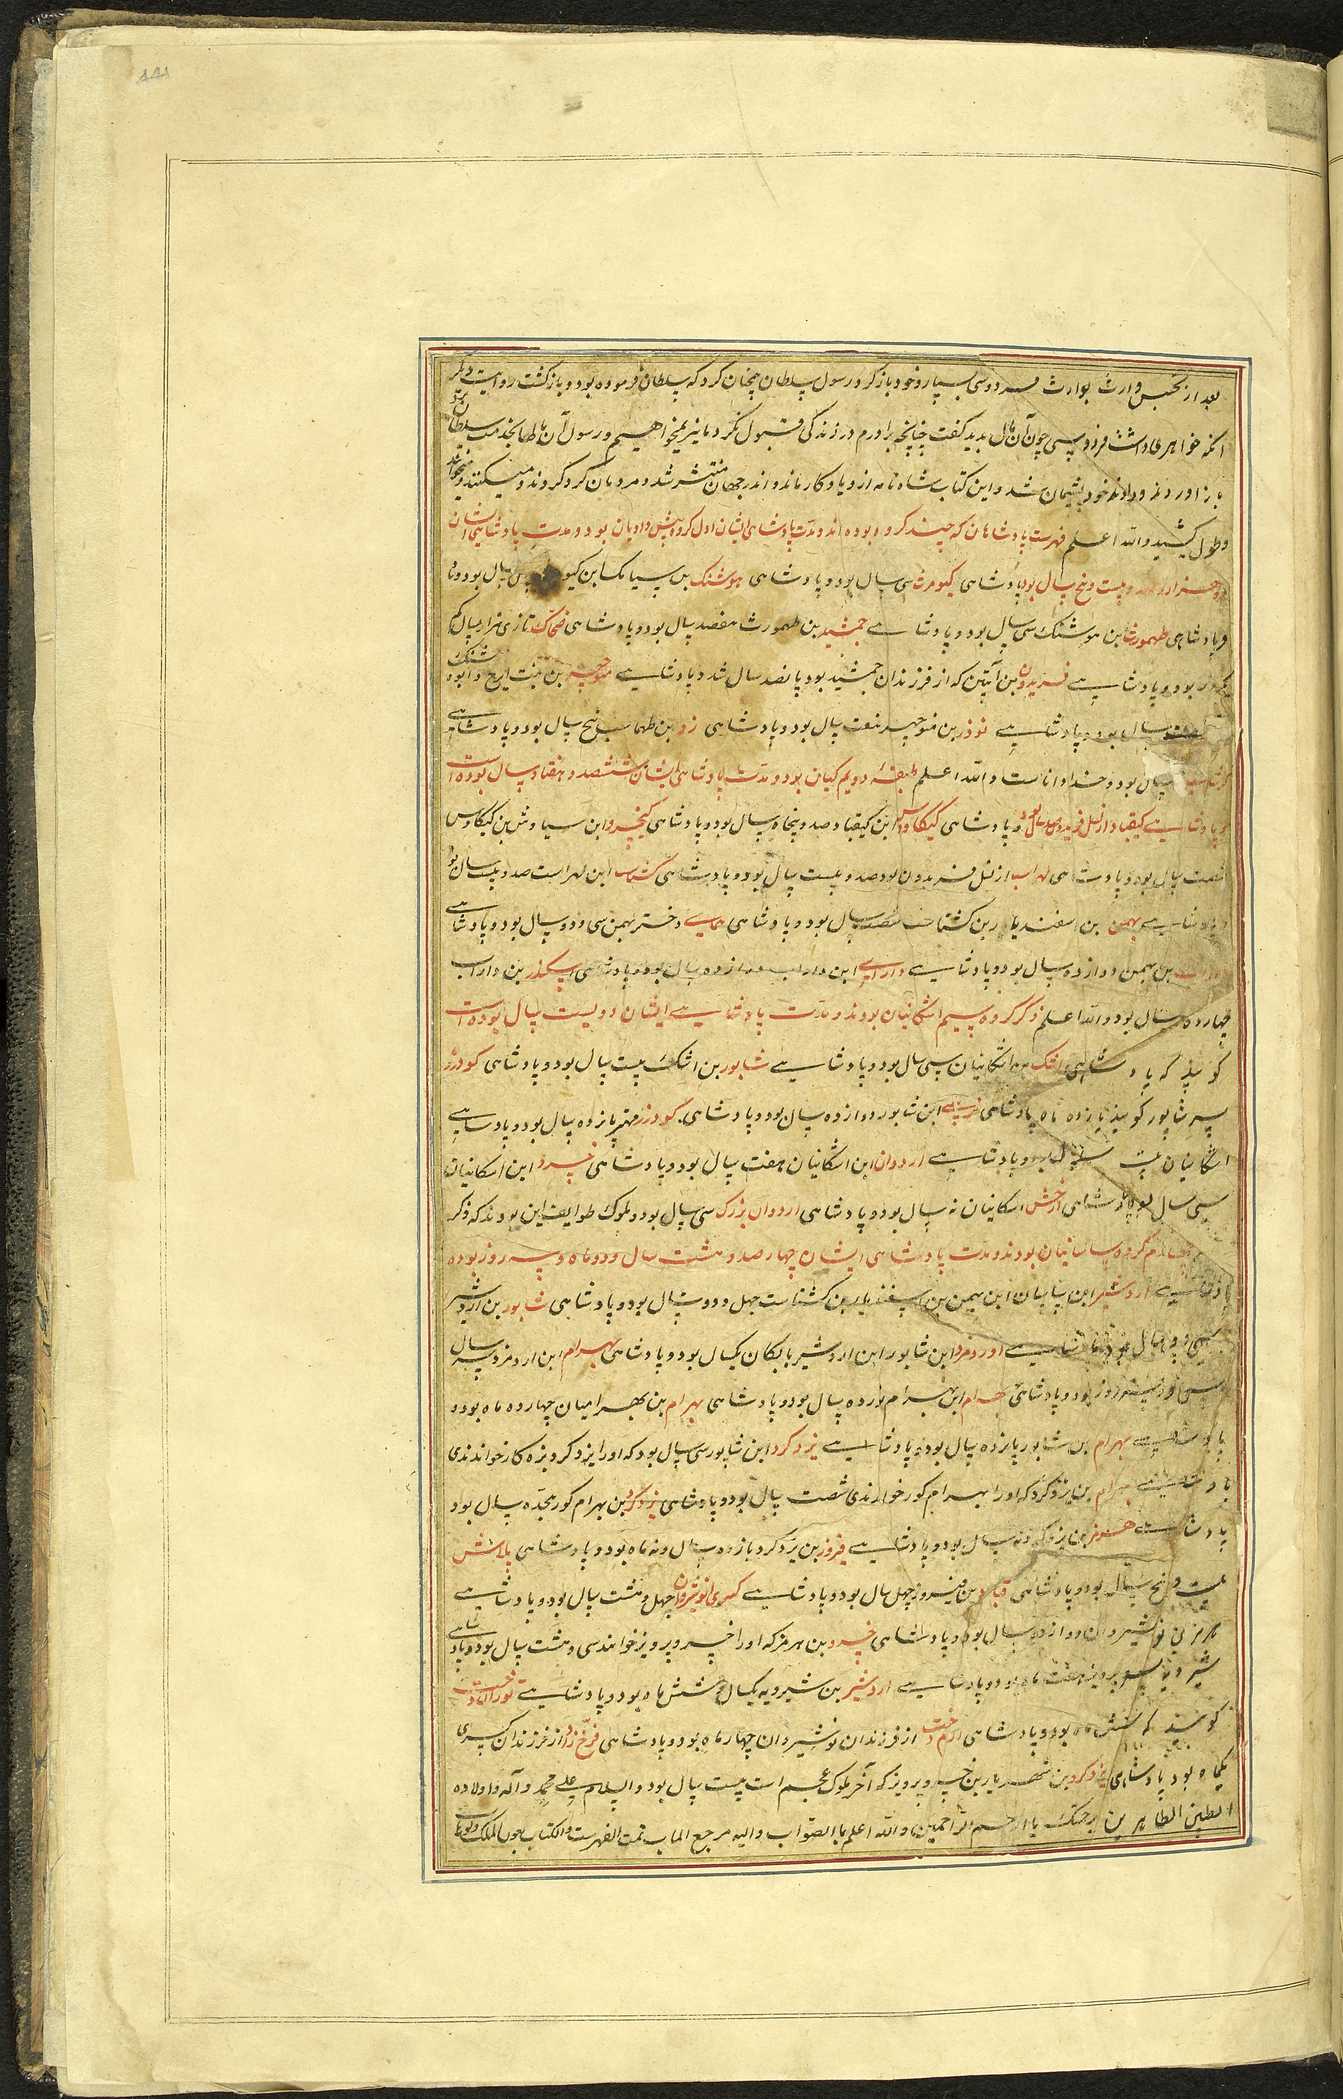 بعد از تحبس وارث بوارث فردوسی سپار و خود بازگرد رسول سلطان همچنان کرد که سلطان فرموده بود و بازگشت روایت دیگر
آنکه خواهر ما داشت فردوسی چون آن مال بدید گفت چنانچه برادرم در زندگی قبول نکرد ما نیز نمیخواهیم و رسول آن مال بخدمت سلطان برد
باز آوردند و داوند خود پشیمان شد و این کتاب شاه نامه ازو یادگار ماند و اندر جهان منتشر شد و مردمان گرد کردند و میکنند و میخوانند
و طول کشید والله اعلم فهرست پادشاهان که چند گروه بوده اند و مدت پادشاهی ایشان اول گروه پیش دادیان بود و مدت پادشاهی ایشان
دو هزار و بیست و پنج سال بود پادشاهی کیومرث سی سال بود و پادشاهی هوشنگ بن سیامک ابن کیو سال بود و
و پادشاهی طهمورث ابن هوشنگ سی سال بود و پادشاهی جمشید بن طهمورث هفصد سال بود و پادشاهی ضحاک تازی هزار سال کم
یکروز بود و پادشاهی فریدون بن آبتین که از فرزندان جمشید بود پانصد سال شد و پادشاهی منوچهر بن بنت ایرج
سال بود و پادشاهی نوذر بن منوچهر هفت سال بود و پادشاهی زو بن طهماسب پنج سال بود و پادشاهی
سال بود و خدا داناست والله اعلم طبقهٔ دویم کیان بود و مدت پادشاهی ایشان ششصد و هفتاد سال بوده است
پادشاهی کیقباد از نسل فریدون صد سال بود و پادشاهی کیکاوس ابن کیقباد صد و پنجاه سال بود و پادشاهی کیخسرو ابن سیاوش بن کیکاوس
شصت سال بود و پادشاهی لهراسب از نسل فریدون بود صد و بیست سال بود و پادشاهی گشتاسب ابن لهراسب صد و بیست سال بود
و پادشاهی بهمن بن اسفندیار بن گشتاسب سال بود و پادشاهی همای دختر بهمن سی و دو سال بود و پادشاهی
بن بهمن دوازده سال بود و پادشاهی دارای ابن داراب دوازده سال بود و پادشاهی اسکندر بن داراب
چهارده سال بود والله اعلم ذکر گروه سیم اشکانیان بودند و مدت پادشاهی ایشان دویست سال بوده است
گویند که پادشاهی اشک اشکانیان سی سال بود و پادشاهی شاپور بن اشک بیست سال بود و پادشاهی گودرز
پسر شاپور گویند یازده ماه پادشاهی ابن شاپور دوازده سال بود و پادشاهی گودرز مهتر پانزده سال بود و پادشاهی
اشکانیان بیست سال بود و پادشاهی اردوان ابن اشکانیان هفت سال بود و پادشاهی خسرو ابن اشکانیان
سی سال بود پادشاهی ارخش اشکانیان نه سال بود و پادشاهی اردوان بزرگ سی سال بود و ملوک طوایف این بودند که ذکر
گروه ساسانیان بودند و مدت پادشاهی ایشان چهار صد و هشت سال و دو ماه و سه روز بوده
پادشاهی اردشیر ابن ساسان ابن بهمن بن اسفندیار بن گشتاسب چهل و دو سال بود و پادشاهی شاپور بن اردشیر
سی و دو سال بود پادشاهی اورمزد ابن شاپور ابن اردشیر بابکان یکسال بود و پادشاهی بهرام ابن اورمزد سه سال
و سه روز بود و پادشاهی بهرام ابن بهرام نوزده سال بود و پادشاهی بهرام بن بهرامیان چهارده ماه بود و
پادشاهی بهرام بن شاپور پانزده سال بود و پادشاهی یزدگرد ابن شاپور سی سال بود که او را یزدگرد بزه کار خواندندی
پادشاهی بهرام بن یزدگرد که او را بهرام گور خواندندی شصت سال بود و پادشاهی یزدگرد بن بهرام گور هجده سال بود
پادشاهی هرمز بن یزدگرد نه سال بود و پادشاهی فیروز بن یزدگرد یازده سال و نه ماه بود و پادشاهی بلاش
بیست و پنج سال بود و پادشاهی قباد بن فیروز چهل سال بود و پادشاهی کسری انوشیروان چهل و هشت سال بود و پادشاهی
هرمز بن نوشیروان دوازده سال بود و پادشاهی خسرو بن هرمز که او را خسرو پرویز خوانند سی و هشت سال بود و پادشاهی
شیرویه پسر پرویز هفت ماه بود و پادشاهی اردشیر بن شیرویه یکسال و شش ماه بود و پادشاهی توران دخت
گویند که شش ماه بود و پادشاهی ازرم دخت از فرزندان نوشیروان چهار ماه بود و پادشاهی فرخ زاد از فرزندان کسری
یکماه بود پادشاهی یزدگرد بن شهریار بن خسرو پرویز که آخر ملوک عجم است بیست سال بود والسلام علی محمد وآله و اولاده
الطیبین الطاهرین برحمتک یا ارحم الراحمین والله اعلم بالصواب والیه مرجع الماب تمت الفهرست والکتاب بعون الملک الوهاب